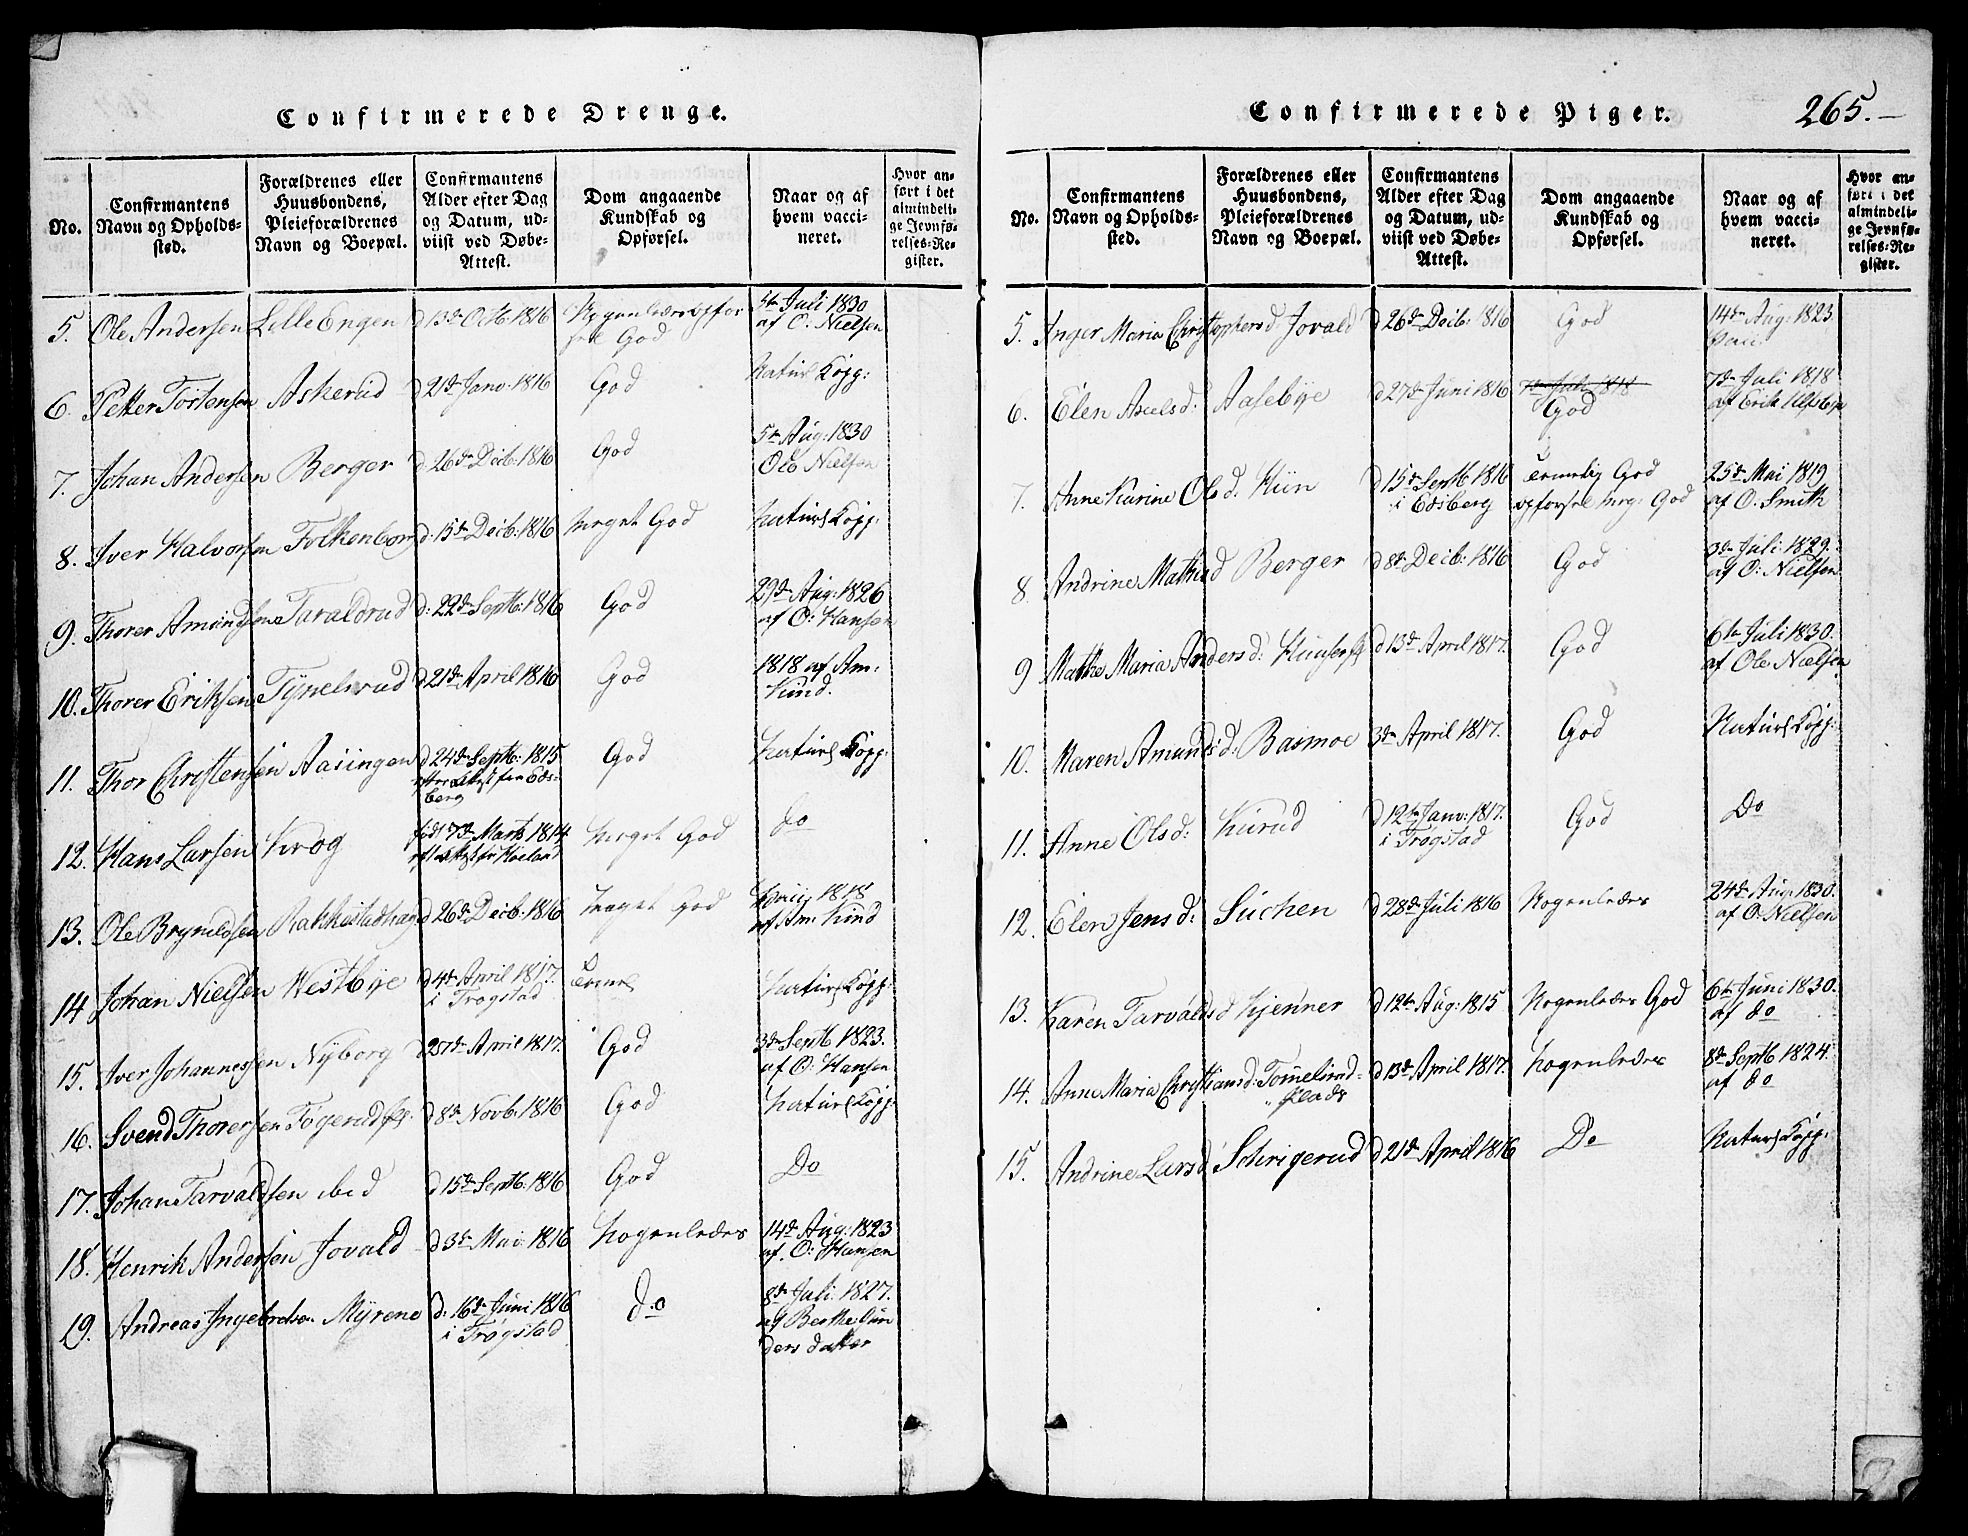 Confirmerede Drenge.
No.
Confirmantens Navn og Opholdssted.
Forældrenes eller Huusbondens, Pleieforældrenes Navn og Boepæl.
Confirmantens Alder efter Dag og Datum, udviist ved Døbe-Attest.
Dom angaaende Kundskab og Opførsel.
Naar og af hvem vaccineret.
Hvor anført i det almindelige Jevnførelses-Register.
5. Ole Andersen Lille Engen d 13de Octb: 1816 God 5te Juli 1830
af O. Nielsen
6. Petter Tostensen Askerud d 21de Janv: 1816 God Naturl Kopp:
7. Johan Andersen Berger d. 26de Decb: 1816 God 5te Aug: 1830
Ole Nielsen
8. Iver Halvorsen Folkenborg d. 15de Decb: 1816 Meget God Naturl Kopp:
9. Thorer Amundsen Taraldrud d: 22de Septb: 1816 God 29de Aug: 1826
af O: Hansen
10. Thorer Eriksen Tynelsrud d 21de April 1816 God 1818 af Am:
Kind.
11. Thor Christensen d 24de Septb: 1815 God Naturl Kopp:
efter Attest fra Eds-
berg
12. Hans Larsen Krog fød 17de Marts 1814 Meget God do
13. Ole Brynildsen d 26de Decb: 1816 Meget God 1818
af Am: Kind
14 Johan Nielsen Westbye d 4de April 1817. Naturl Kopp:
i Trøgstad
15. Iver Johannessen Nyborg d 27de April 1817. God 3de Septb 1823.
af O: Hansen
16. Svend Thoresen d 8de Novb: 1816 God Naturl Kopp:
17. Johan Tarvaldsen ibid d 15de Septb: 1816 God Do
18. Henrik Andersen Jovald d 3de Mai 1816 Nogenledes 14de Aug: 1823
af. O: Hansen
19. Andreas Ingebretsen Myrene d. 16de Juni 1816 do 8de Juli 1827.
i Trøgstad af Berthe Gun
ders datter
Confirmerede Piger.
265.
No.
Confirmantens Navn og Opholdssted.
Forældrenes eller Huusbondens, Pleieforældrenes Navn og Boepæl.
Confirmantens Alder efter Dag og Datum, udviist ved Døbe-Attest.
Dom angaaende Kundskab og Opførsel.
Naar og af hvem vaccineret.
Hvor anført i det almindelige Jevnførelses-Register.
5. Inger Maria Christophersd Jovald d 26de Decb: 1816 God 14de Aug: 1823
6. Elen Axelsd: Aasebye d 27de Juni 1816 7de Juli 1818 God 7de Juli 1818
af Erik
7. Anne Karine Olsd. Hiin d 15de Septb 1816 God 25de Mai 1819
i Edsberg opførsel meg: God af O: Smith
8. Andrine Mathisd Berger d 8de Decb: 1816 God 3de Juli 1829.
af O: Nielsen
9 Mathe Maria Andersd: d 13de April 1817. God 6te Juli 1830.
af Ole Nielsen
10. Maren Amundsd: Basmoe 3de April 1817. God Naturl Kopp:
11. Anne Olsd: Kurud d 12te Janv: 1817. God Do
i Trøgstad
12. Elen Jensd: Suchen d 28de Juli 1816 Nogenledes 24de Aug: 1830.
af O: Nielsen
13. Karen Tarvaldsd Kjenner d 12te Aug: 1815 Nogenledes God 6te Juni 1830.
af do
14. Anne Maria Christiansd: d 13de April 1817. Nogenledes 8de Septb 1824.
Plads af do
15. Andrine Larsd Schrigerud d 21de April 1816 Do Naturl Kopp: